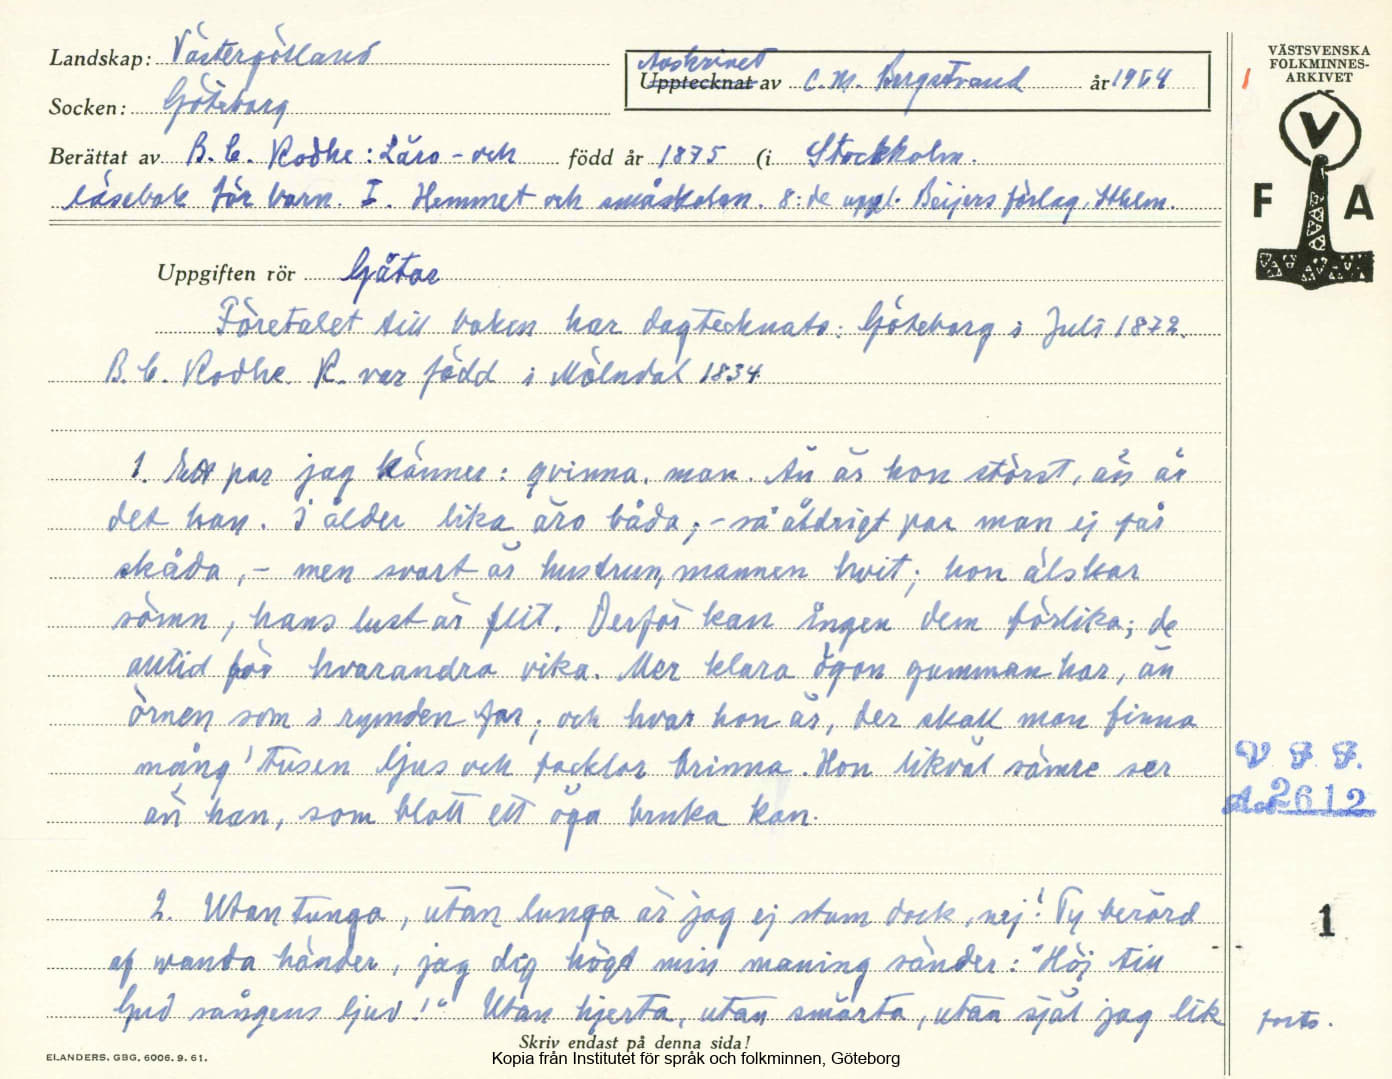 Landskap: Västergötland
Socken: Göteborg
Avskrivet
Upptecknat av C. M. Bergstrand år 1964
Berättat av B. C. Rodhe: Läro- och född år 1875 (i Stockholm.
läsebok för barn. I. Hemmet och småskolan. 8:de uppl. Beijers förlag, Sthlm.
VÄSTSVENSKA
FOLKMINNES-
ARKIVET
1
V
F A
Uppgiften rör Gåtor
Företalet till boken har dagtecknats: Göteborg i Juli 1872.
B. C. Rodhe. R. var född i Mölndal 1834.
1. Ett par jag känner: qvinna, man. Än är hon störst, än är
det han. I ålder lika äro båda; - så åldrigt par man ej får
skåda, - men svart är hustrun, mannen hvit; hon älskar
sömn, hans lust är flit. Derför kan ingen dem förlika; de
alltid för hvarandra vika. Mer klara ögon gumman har, än
örnen som i rymden far; och hvar hon är, der skall man finna
mång' tusen ljus och facklor brinna. Hon likväl sämre ser
än han, som blott ett öga bruka kan.
V. F. F.
Acc. 2612
2. Utan tunga, utan lunga är jag ej stum dock, nej! Ty berörd
af wanda händer, jag dig högt min maning sänder: "Höj till
Gud sångens ljud!" Utan hjerta, utan smärta, utan själ jag lik
1
forts.
Skriv endast på denna sida!
ELANDERS, GBG, 6006. 9. 61.
Kopia från Institutet för språk och folkminnen, Göteborg